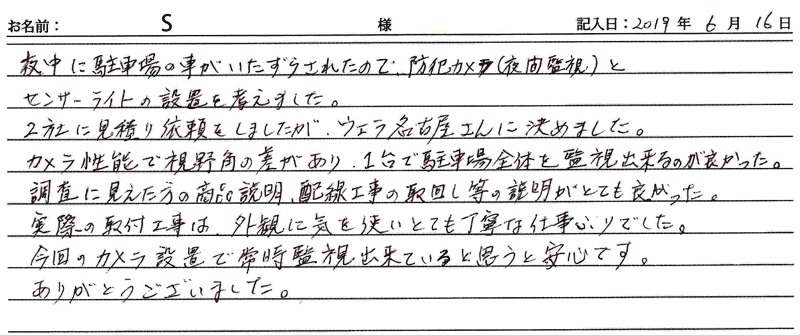 お名前： S 様 記入日：2019年 6月 16日
夜中に駐車場の車がいたずらされたので、防犯カメラ(夜間監視)と
センサーライトの設置を考えました。
2社に見積り依頼をしましたが、ウェラ名古屋さんに決めました。
カメラ性能で視野角の差があり、1台で駐車場全体を監視出来るのが良かった。
調査に見えた方の商品説明、配線工事の取回し等の説明がとても良かった。
実際の取付工事は、外観に気を使いとても丁寧な仕事ぶりでした。
今回のカメラ設置で常時監視出来ていると思うと安心です。
ありがとうございました。